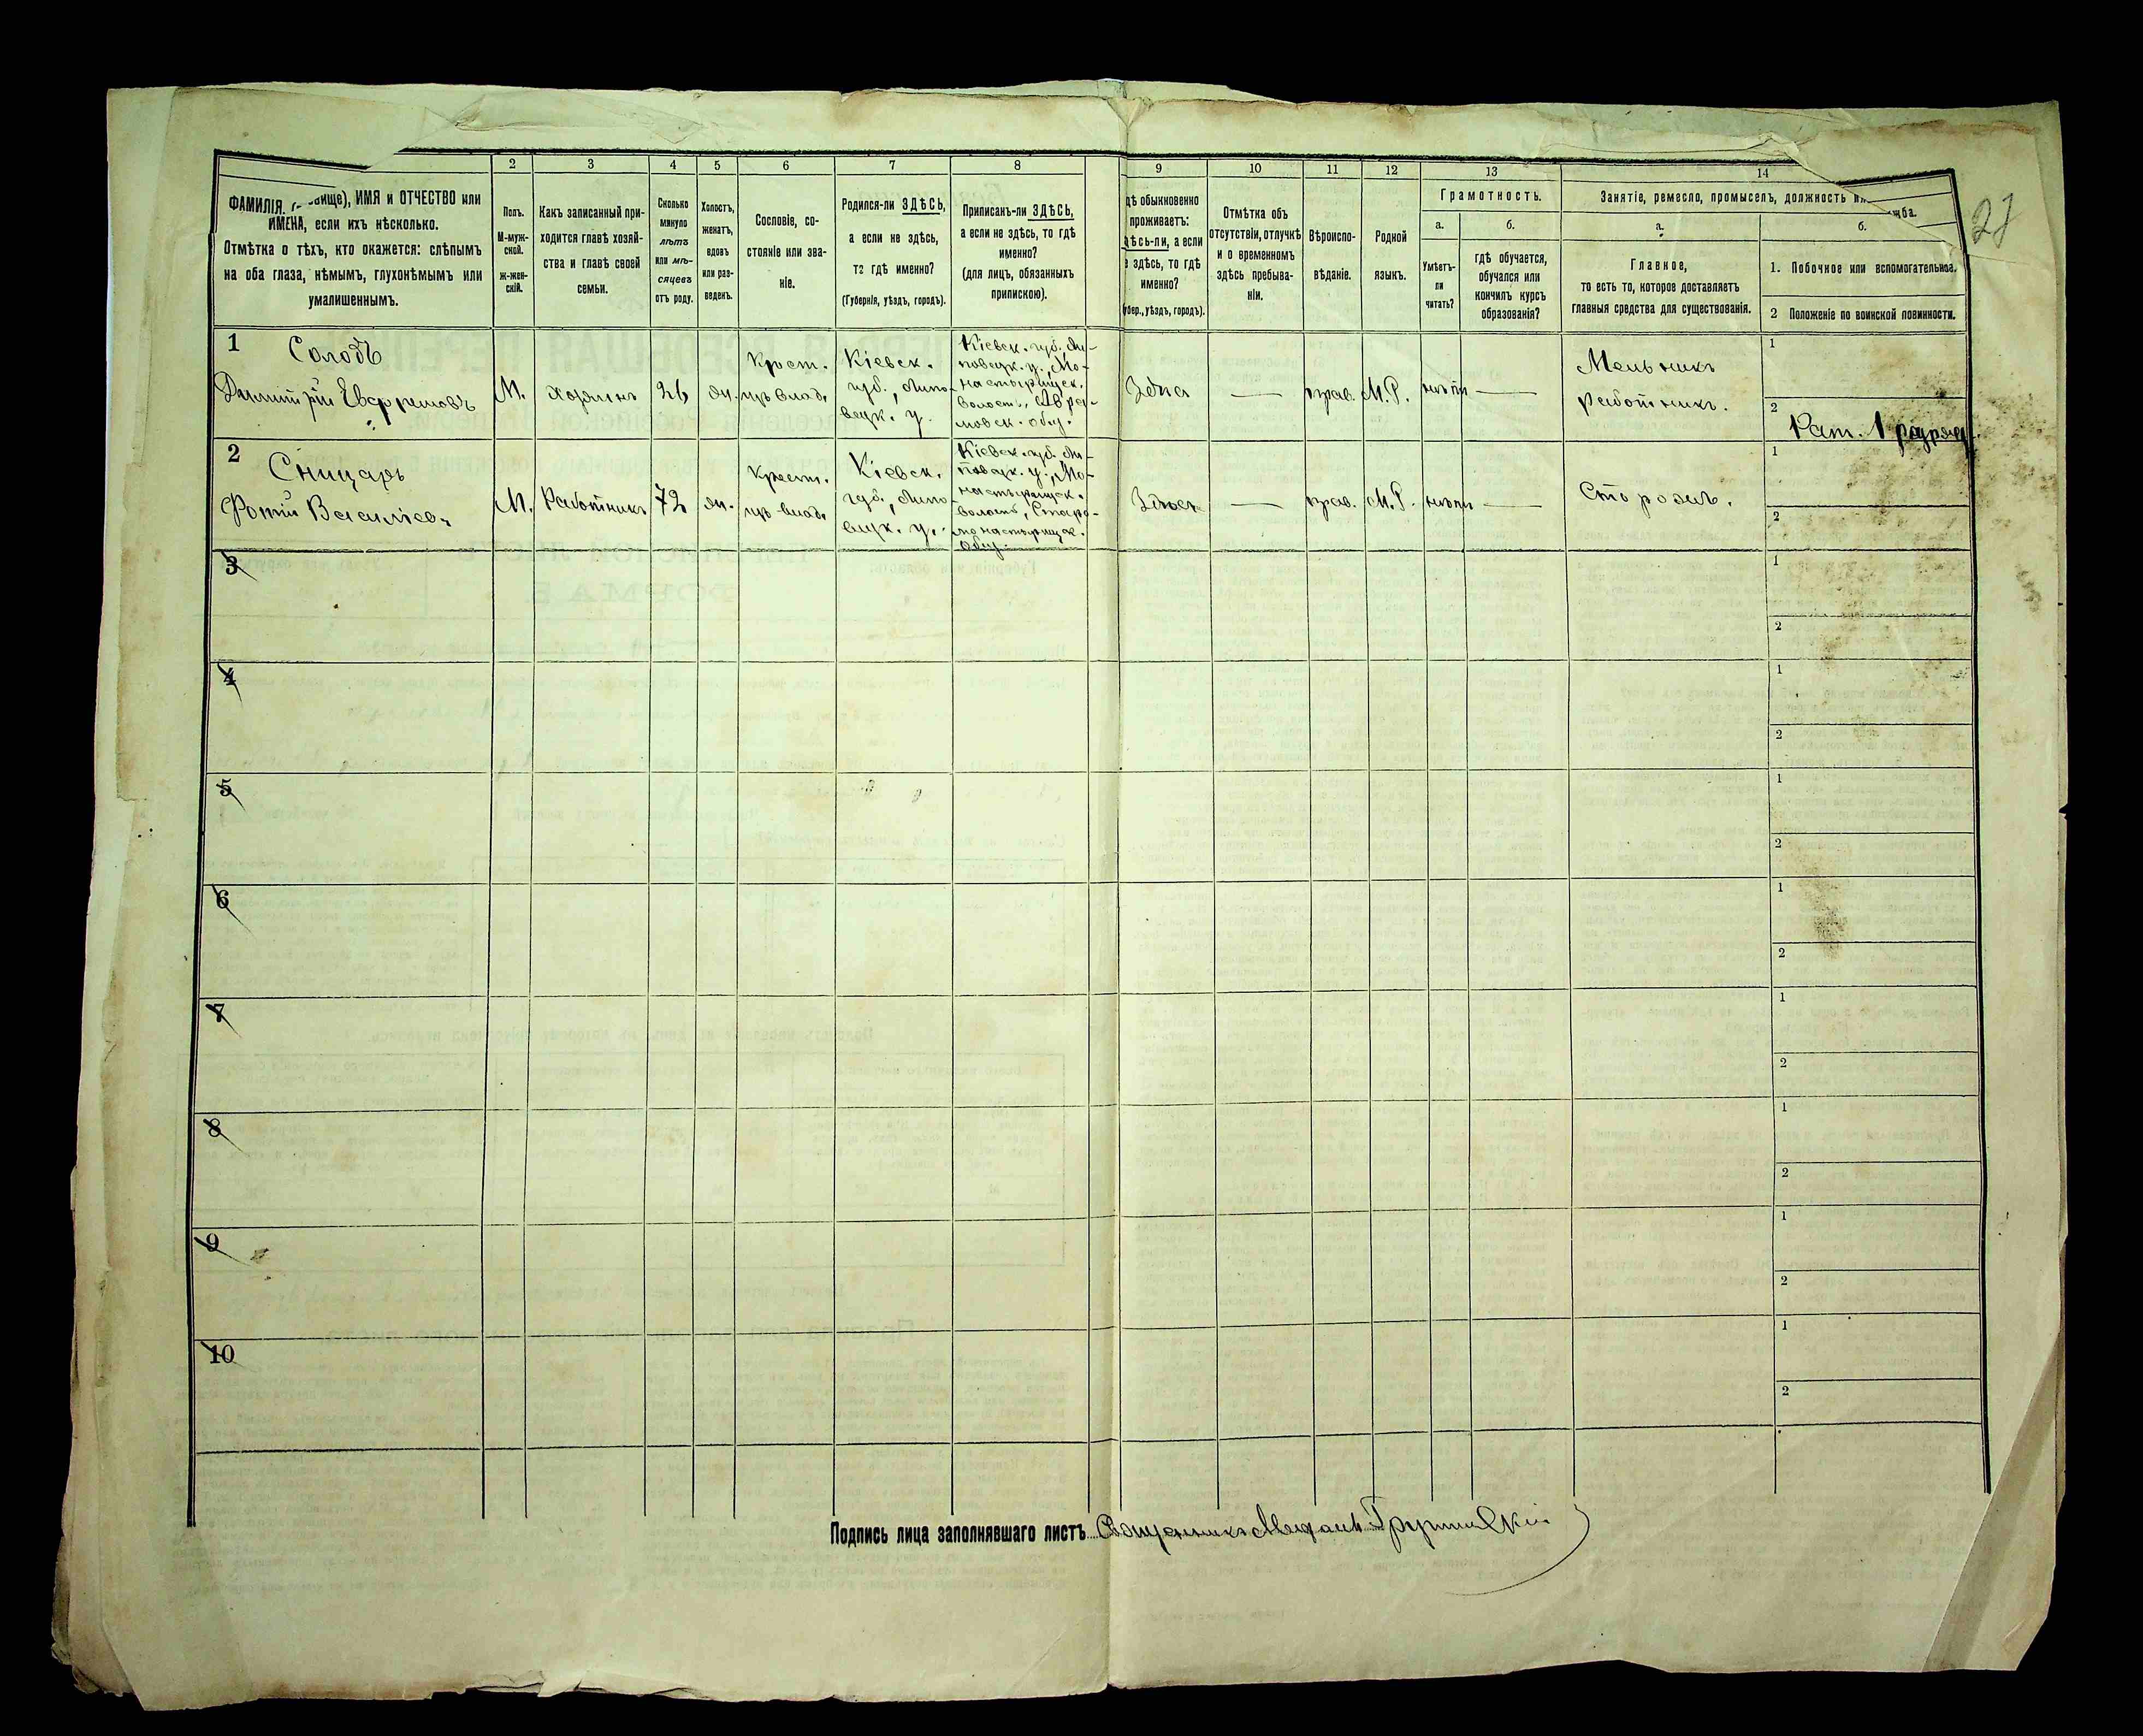 27
2 3 4 5 6 7 8 9 10 11 12 13 14
ФАМИЛІЯ, ИМЯ и ОТЧЕСТВО или
ИМЕНА, если ихъ нѣсколько.
Отмѣтка о тѣхъ, кто окажется: слѣпымъ
на оба глаза, нѣмымъ, глухонѣмымъ или
умалишеннымъ.
Полъ.
М-муж-
ской.
ж-жен-
скій.
Какъ записанный при-
ходится главѣ хозяй-
ства и главѣ своей
семьи.
Сколько
минуло
лѣтъ
или мѣ-
сяцевъ
отъ роду.
Холостъ,
женатъ,
вдовъ
или раз-
веденъ.
Сословіе, со-
стояніе или зва-
ніе.
Родился-ли ЗДѢСЬ,
а если не здѣсь,
то гдѣ именно?
(Губернія, уѣздъ, городъ).
Приписанъ-ли ЗДѢСЬ,
а если не здѣсь, то гдѣ
именно?
(для лицъ, обязанныхъ
припискою).
дѣ обыкновенно
проживаетъ:
дѣсь-ли, а если
здѣсь, то гдѣ
именно?
бер., уѣздъ, городъ).
Отмѣтка объ
отсутствіи, отлучкѣ
и о временномъ
здѣсь пребыва-
ніи.
Вѣроиспо-
вѣданіе.
Родной
языкъ.
Грамотность.
а.
Умѣетъ-
ли
читать?
б.
гдѣ обучается,
обучался или
кончилъ курсъ
образованія?
Занятіе, ремесло, промыселъ, должность
а.
Главное,
то есть то, которое доставляетъ
главныя средства для существованія.
б.
1. Побочное или вспомогательное.
2 Положеніе по воинской повинности.
1
Солодъ
Димитрій
М.
хозяинъ
26
Крест.
Кіевск.
губ., Липо-
вецк. у.
Кіевск. губ. Ли-
повецк. у., Мо-
настырищск.
волость,
общ.
прав.
М.Р.
Мельникъ
работникъ.
1
2
Рат. 1 разряд.
2
Сницарь
Фотій
М.
Работникъ
72
Крест.
Кіевск.
губ., Липо-
вецк. у.
Кіевск. губ. Ли-
повецк. у., Мо-
настырищск.
волость, Старо-
монастырищск.
общ.
Здѣсь
прав.
М.Р.
Сторожъ.
1
2
3
1
2
4
1
2
5
1
2
6
1
2
7
1
2
8
1
2
9
1
2
10
1
2
Подпись лица заполнявшаго листъ